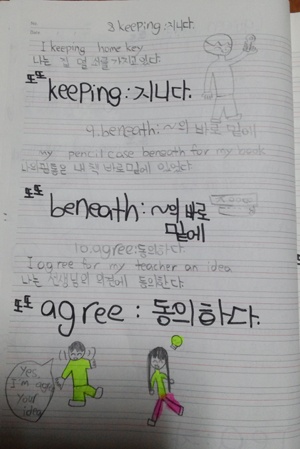 3 keeping : 지니다.
I keeping home key
나는 집 열쇠를 가지고 있다.
또또 keeping : 지니다.
9. beneath : ~의 바로 밑에
my pencil case beneath for my book
나의 필통은 내 책 바로 밑에 있었다
또또 beneath : ~의 바로
밑에
10. agree : 동의하다.
I agree for my teacher an idea
나는 선생님의 의견에 동의한다.
또또 agree : 동의하다.
Yes,
I'm agree
your
idea